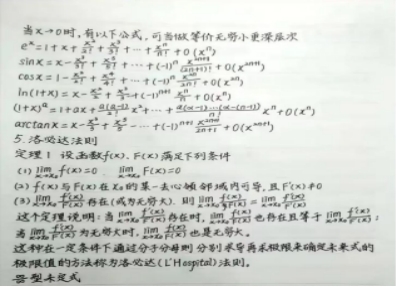 当x→0时,有以下公式,可当做等价无穷小更深层次
e^x=1+x+x²/2!+x³/3!+···+xⁿ/n!+o(xⁿ)
sinx=x-x³/3!+x⁵/5!+···+(-1)ⁿ x^(2n+1)/(2n+1)!+o(x^(2n+1))
cosx=1-x²/2!+x⁴/4!+···+(-1)ⁿ x^(2n)/(2n)!+o(x^(2n))
ln(1+x)=x-x²/2+x³/3-···+(-1)^(n+1) xⁿ/n+o(xⁿ)
(1+x)^a=1+ax+a(a-1)/2! x²+···+a(a-1)···(a-(n-1))/n! xⁿ+o(xⁿ)
arctanx=x-x³/3+x⁵/5-···+(-1)^(n+1) x^(2n+1)/(2n+1)+o(x^(2n+1))
5.洛必达法则
定理1 设函数f(x).F(x)满足下列条件
(1) lim x→x₀ f(x)=0 lim x→x₀ F(x)=0
(2) f(x)与F(x)在x₀的某一去心领邻域内可导,且F'(x)≠0
(3) lim x→x₀ f'(x)/F'(x) 存在(或为无穷大). 则 lim x→x₀ f(x)/F(x)=lim x→x₀ f'(x)/F'(x)
这个定理说明:当 lim x→x₀ f'(x)/F'(x) 存在时, lim x→x₀ f(x)/F(x) 也存在且等于 lim x→x₀ f'(x)/F'(x);
当 lim x→x₀ f'(x)/F'(x) 为无穷大时, lim x→x₀ f(x)/F(x) 也是无穷大。
这种在一定条件下通过分子分母别分别求导再求极限来确定未定式的
极限值的方法称为洛必达(L'Hospital)法则。
型未定式